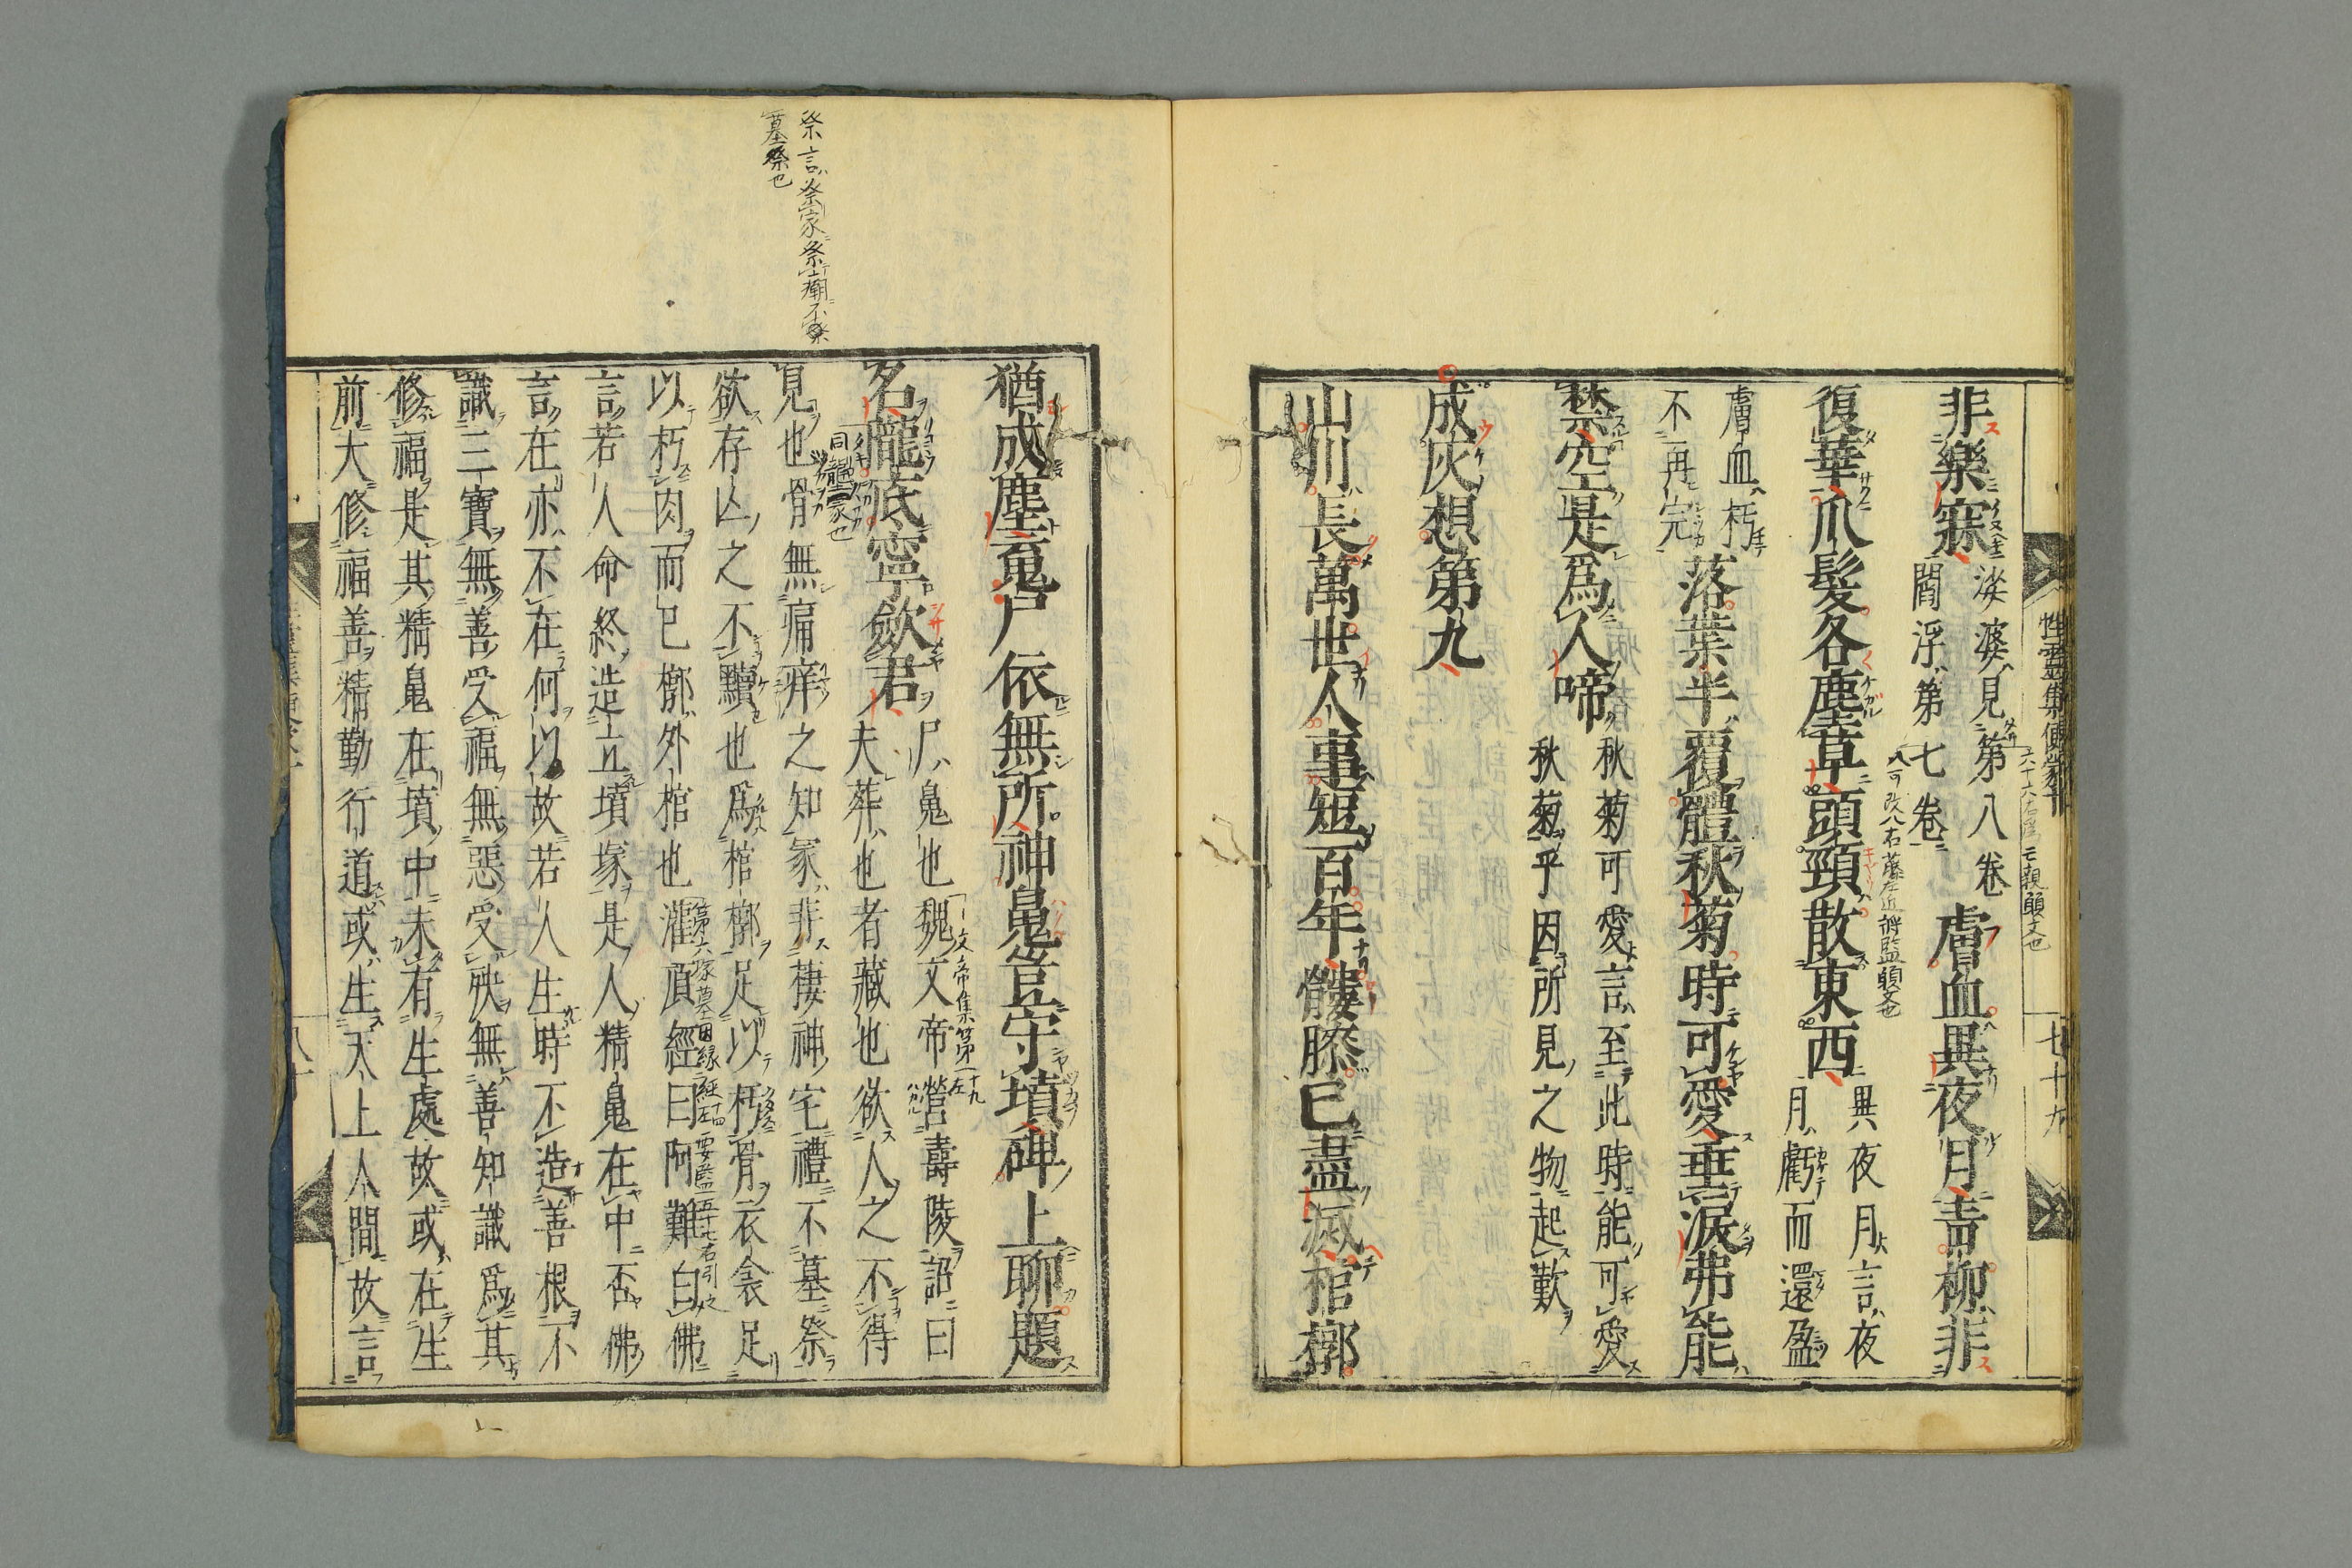 非樂寐
娑婆見第八卷
閻浮第七卷
膚血異夜月青柳非
復華爪髮各塵草頭頸散東西
異夜月言夜
月虧而還盈
膚血朽
不再完
落葉半覆體秋菊時可愛垂淚弗能
禁空是爲人啼
秋菊可愛言至此時能可愛
秋菊乎因所見之物起歎
成灰想第九
山川長萬世人事短百年髏膝已盡滅棺槨
猶成塵䰟尸依無所神鬼豈守墳碑上聊題
名隴底寧斂君
尸鬼也魏文帝營壽陵詔曰
夫葬也者藏也欲人之不得
見也骨無痛痒之知冢非棲神宅禮不墓祭
欲存亾之不黷也爲棺槨足以朽骨衣衾足
以朽肉而已槨外棺也灌頂經曰阿難白佛
言若人命終造立墳塚是人精䰟在中否佛
言在亦不在何以故若人生時不造善根不
識三寶無善受福無惡受殃無善知識爲其
修福是其精䰟在墳中未有生處故或在生
前大修福善精勤行道或生天上人間故言
祭言祭家祭廟不祭
墓祭也
性靈集便蒙
七十九